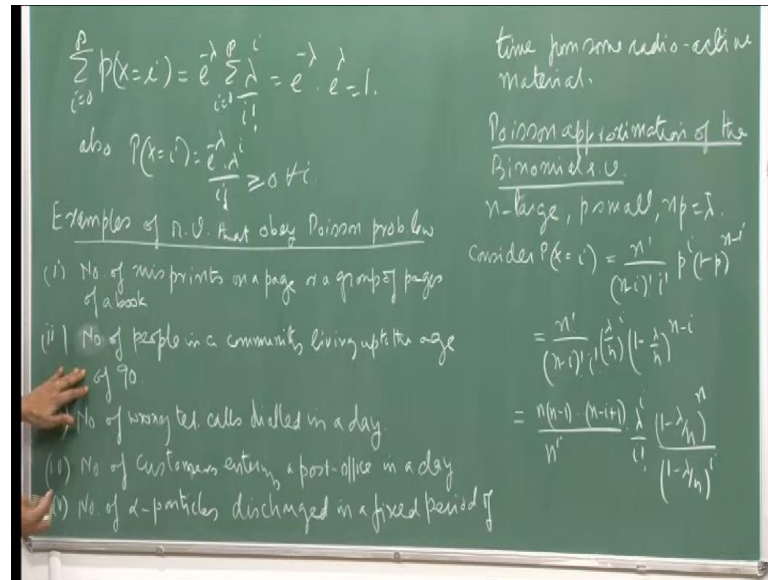 ∑_{i=0}^{∞} p(X=i) = e^{-λ} ∑_{i=0}^{∞} λ^i/i! = e^{-λ} . e^{λ} = 1.
also P(X=i) = e^{-λ}.λ^i/i! ≥ 0 ∀ i
Examples of r.v. that obey Poisson prob. law
(i) No. of misprints on a page or a group of pages
of a book
(ii) No. of people in a community living up to the age
of 90
) No of wrong tel. calls dialled in a day.
(iv) No of customers entering a post-office in a day
(v) No. of α-particles discharged in a fixed period of
time from some radio-active
material.
Poisson approximation of the
Binomial r.v.
n-large, p small, np=λ.
Consider P(X=i) = n!/((n-i)! i!) p^i (1-p)^{n-i}
= n!/((n-i)! i!) (λ/n)^i (1-λ/n)^{n-i}
= n(n-1)..(n-i+1)/n^i λ^i/i! (1-λ/n)^n/(1-λ/n)^i